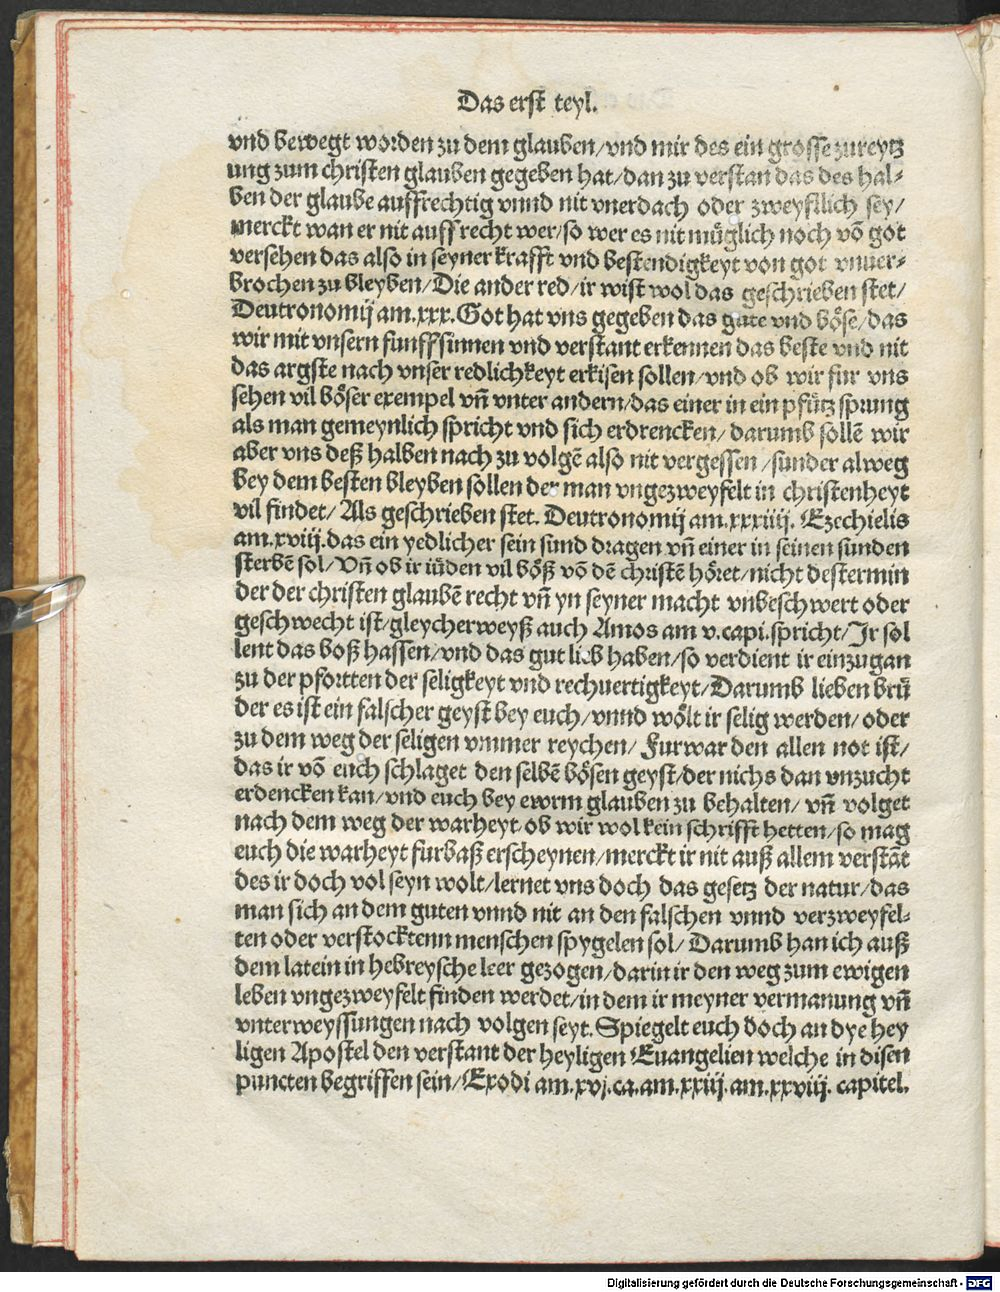 Das erst teyl.
vnd bewegt worden zu dem glauben/vnd mir des ein grosse zureytz
ung zum christen glauben gegeben hat/dan zu verstan das des hal-
ben der glaube auffrechtig vnnd nit vnerdach oder zweyfilich sey/
merckt wan er nit auffrecht wer/so wer es nit müglich noch vō got
versehen das also in seyner krafft vnd bestendigkeyt von got vnuer-
brochen zu bleyben/Die ander red/ir wist wol das geschrieben stet/
Deutronomij am.xxx.Got hat vns gegeben das gute vnd böse/das
wir mit vnsern funffsinnen vnd verstant erkennen das beste vnd nit
das argste nach vnser redlichkeyt erkisen sollen/vnd ob wir fur vns
sehen vil böser exempel vñ vnter andern/das einer in ein pfütz sprung
als man gemeynlich spricht vnd sich erdrencken/darumb sollē wir
aber vns deß halben nach zu volgē also nit vergessen/sunder alweg
bey dem besten bleyben sollen der man vngezweyfelt in christenheyt
vil findet/Als geschrieben stet.Deutronomij am.xxxiiij.Ezechielis
am.xviij.das ein yedlicher sein sund dragen vñ einer in seinen sunden
sterbē sol/Vñ ob ir iüden vil böß vō dē christē höret/nicht destermin
der der christen glaubē recht vñ yn seyner macht vnbeschwert oder
geschwecht ist/gleycherweyß auch Amos am v.capi.spricht/Ir sol
lent das boß hassen/vnd das gut lieb haben/so verdient ir einzugan
zu der pfortten der seligkeyt vnd rechuertigkeyt/Darumb lieben brü
der es ist ein falscher geyst bey euch/vnnd wölt ir selig werden/oder
zu dem weg der seligen vmmer reychen/Furwar den allen not ist/
das ir vō euch schlaget den selbē bösen geyst/der nichs dan vnzucht
erdencken kan/vnd euch bey ewrm glauben zu behalten/vñ volget
nach dem weg der warheyt/ob wir wol kein schrifft hetten/so mag
euch die warheyt furbaß erscheynen/merckt ir nit auß allem verstāt
des ir doch vol seyn wolt/lernet vns doch das gesetz der natur/das
man sich an dem guten vnnd nit an den falschen vnnd verzweyfel-
ten oder verstocktenn menschen spygelen sol/Darumb han ich auß
dem latein in hebreysche leer gezogen/darin ir den weg zum ewigen
leben vngezweyfelt finden werdet/in dem ir meyner vermanung vñ
vnterweyssungen nach volgen seyt.Spiegelt euch doch an dye hey
ligen Apostel den verstant der heyligen Euangelien welche in disen
puncten begriffen sein/Exodi am.xvj.ca.am.xxiij.am.xxviij.capitel.
Digitalisierung gefördert durch die Deutsche Forschungsgemeinschaft - DFG